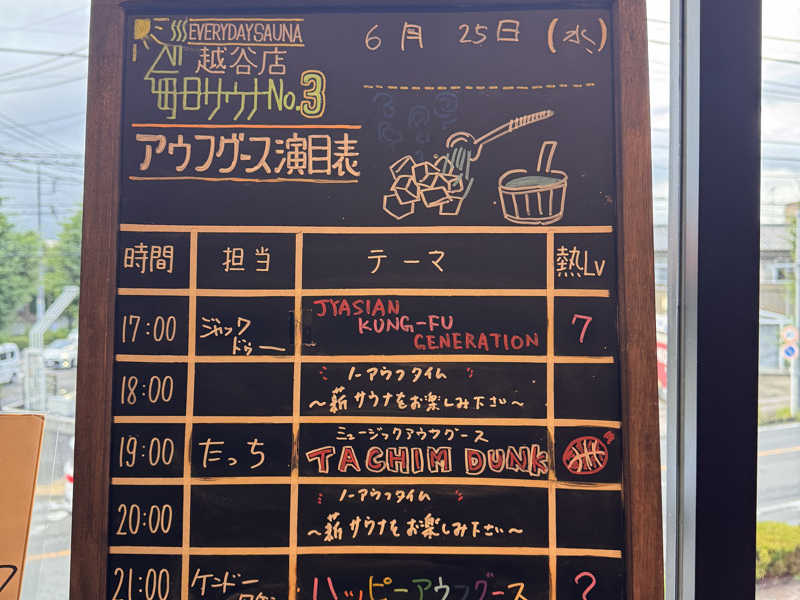 EVERYDAYSAUNA
越谷店
毎日サウナNo.3
アウフグース演目表
6月 25日 (水)
時間 担当 テーマ 熱Lv
17:00 ジャックドゥー JYASIAN KUNG-FU GENERATION 7
18:00 ノーアウフタイム
～薪サウナをお楽しみ下さい～
19:00 たっち ミュージックアウフグース
TACHIM DUNK
20:00 ノーアウフタイム
～薪サウナをお楽しみ下さい～
21:00 ケンドー ハッピーアウフグース ?